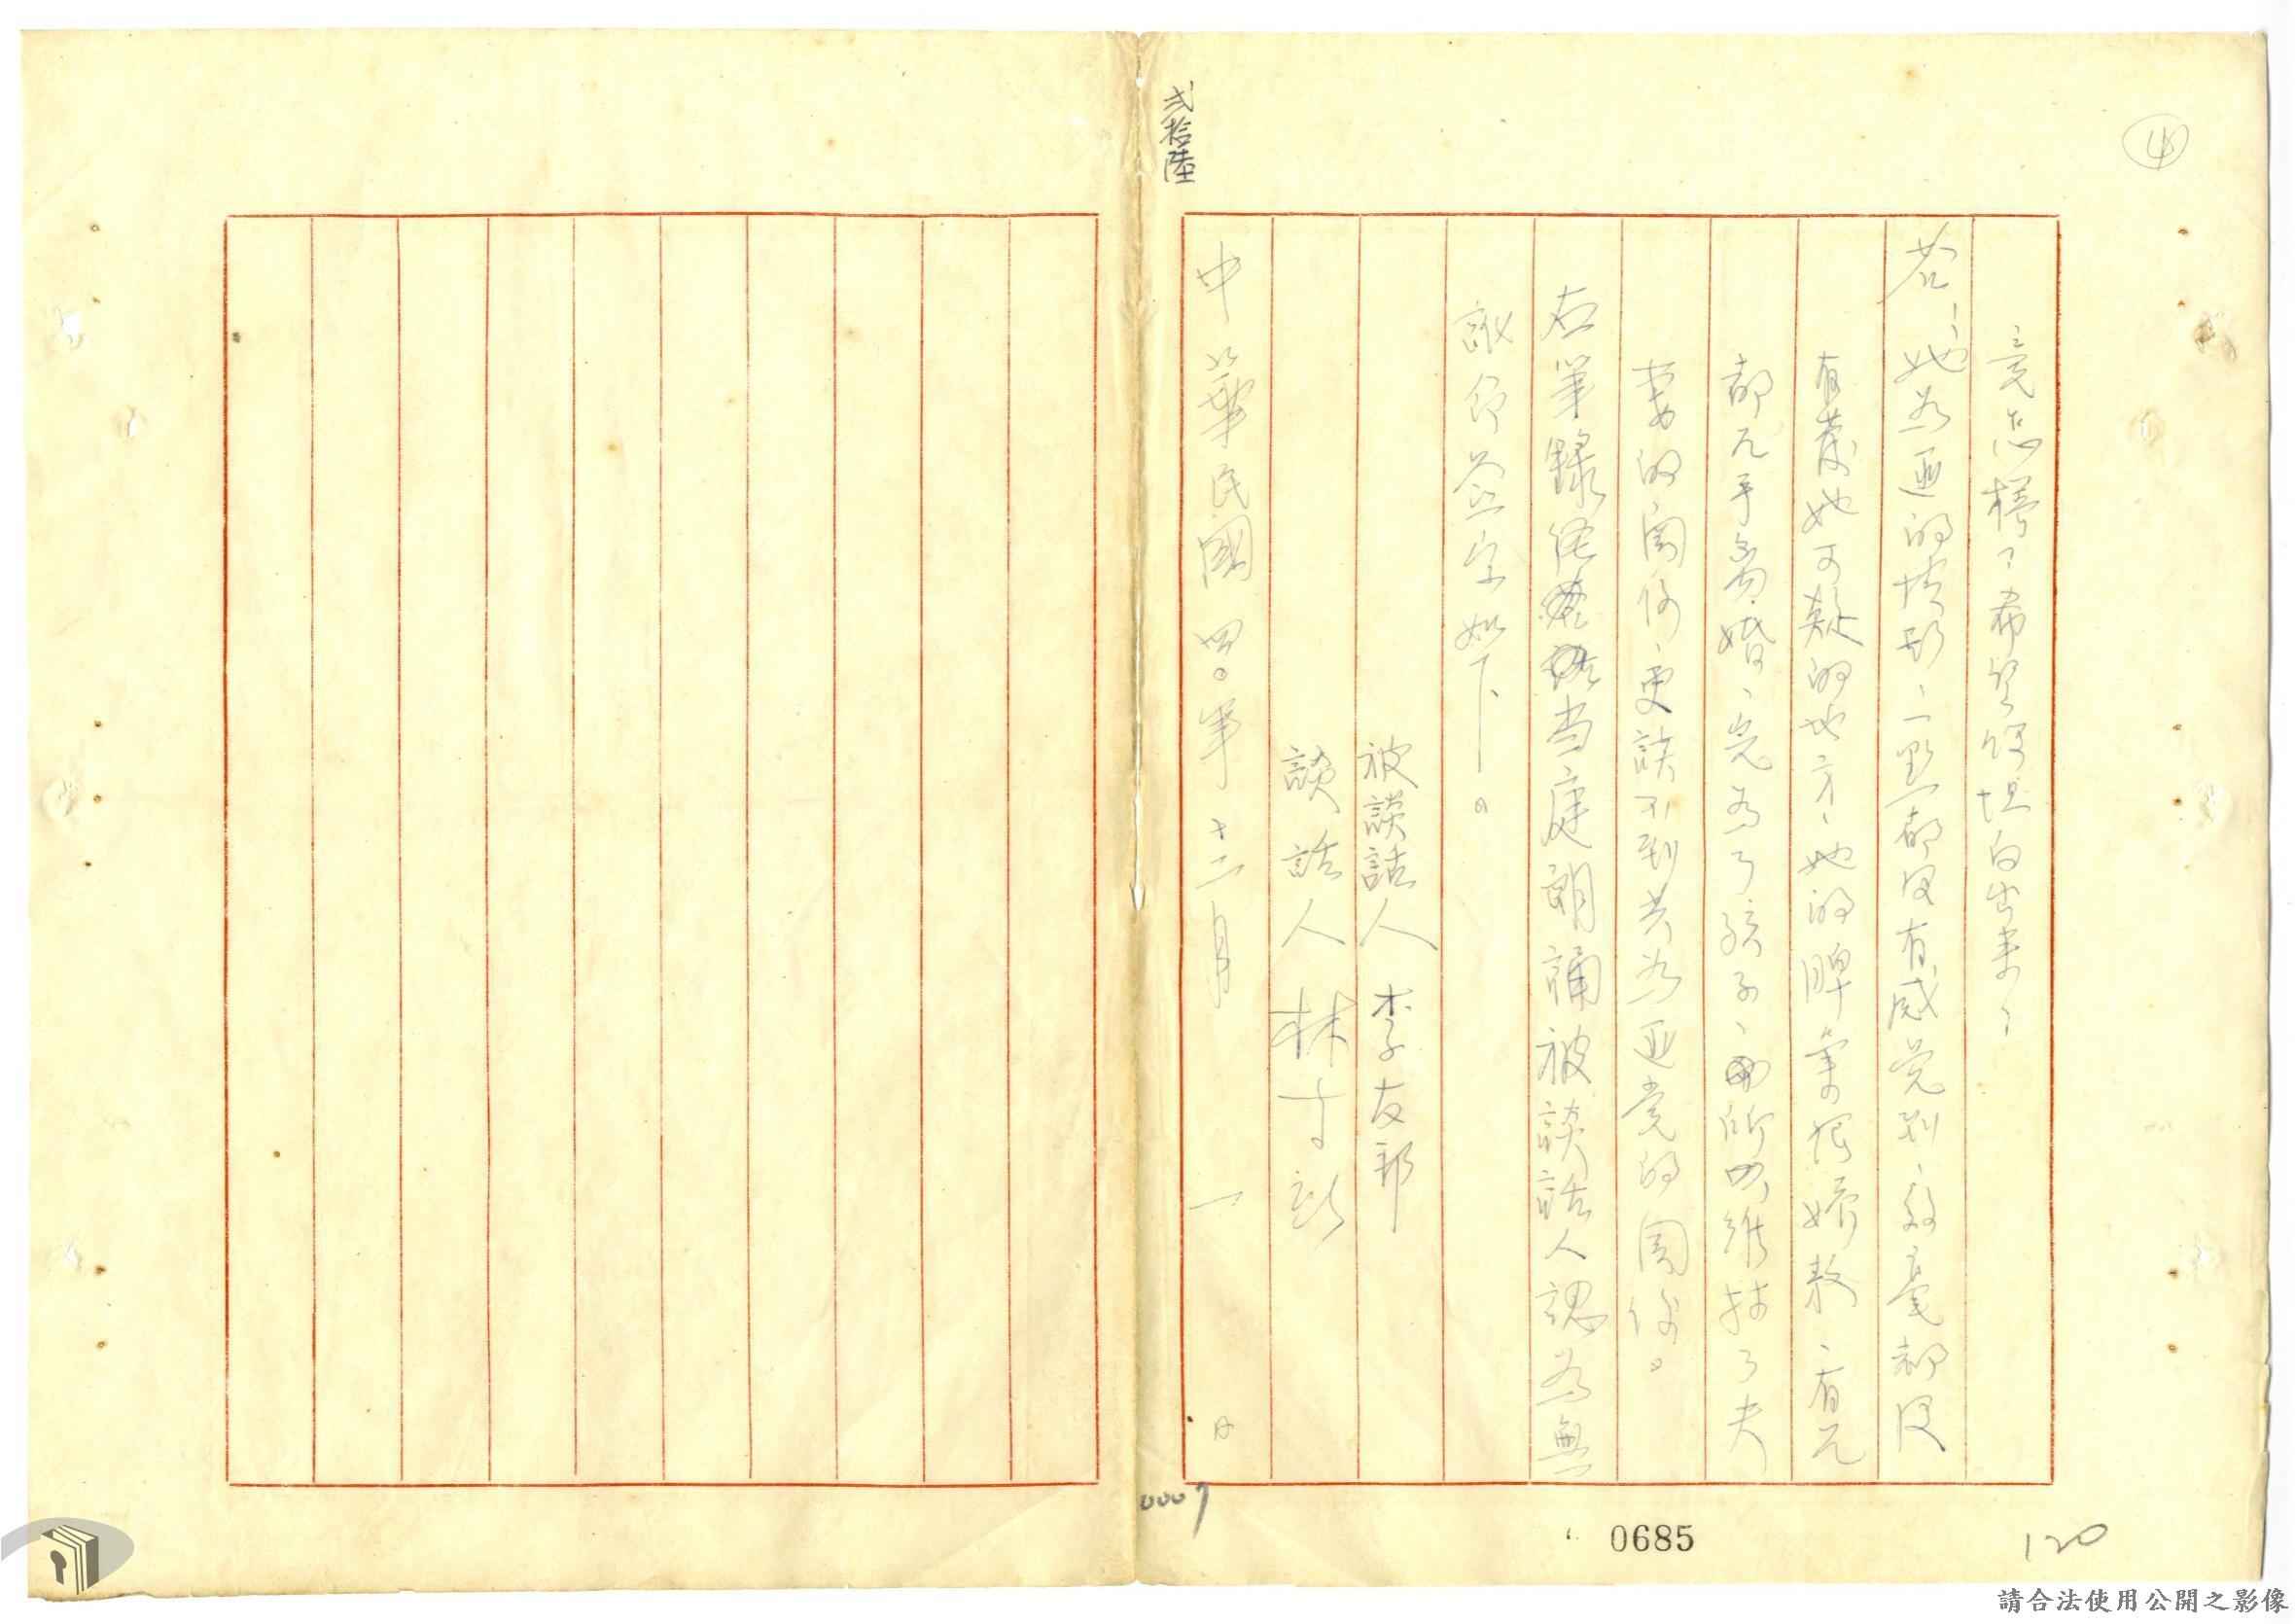 ④
竟怎樣？希望你坦白出来！
答：她為匪的情形，一點都沒有感覺到，絲毫都沒
有發她可疑的地方，她的脾氣很嬌敖，有几
都几乎离婚，完為了孩子，所以維持了夫
妻的関係，更談不到共為匪党的関係。
右筆錄經当庭朗誦被談話人認為無
訛印簽字如下。
被談話人 李友邦
談話人 林
中華民國四〇年十二月一日
貳拾陸
0007
0685
120
請合法使用公開之影像